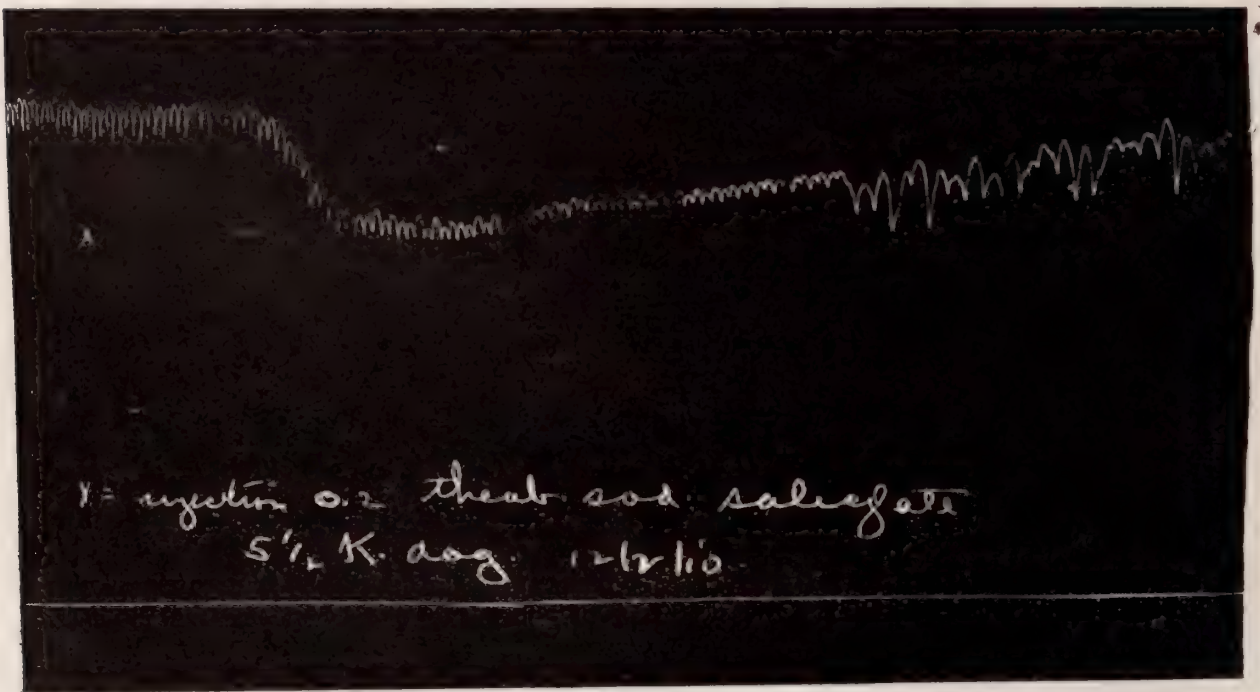 X
X = injection 0.2 theob sod salicylate
5½ K. dog. 12/2/10